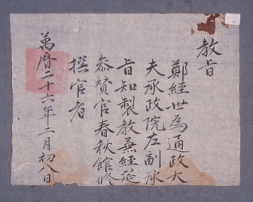 教旨
鄭經世為通政大
夫承政院左副承
旨知製教兼經筵
參贊官春秋館修
撰官者
萬曆二十六年二月初八日